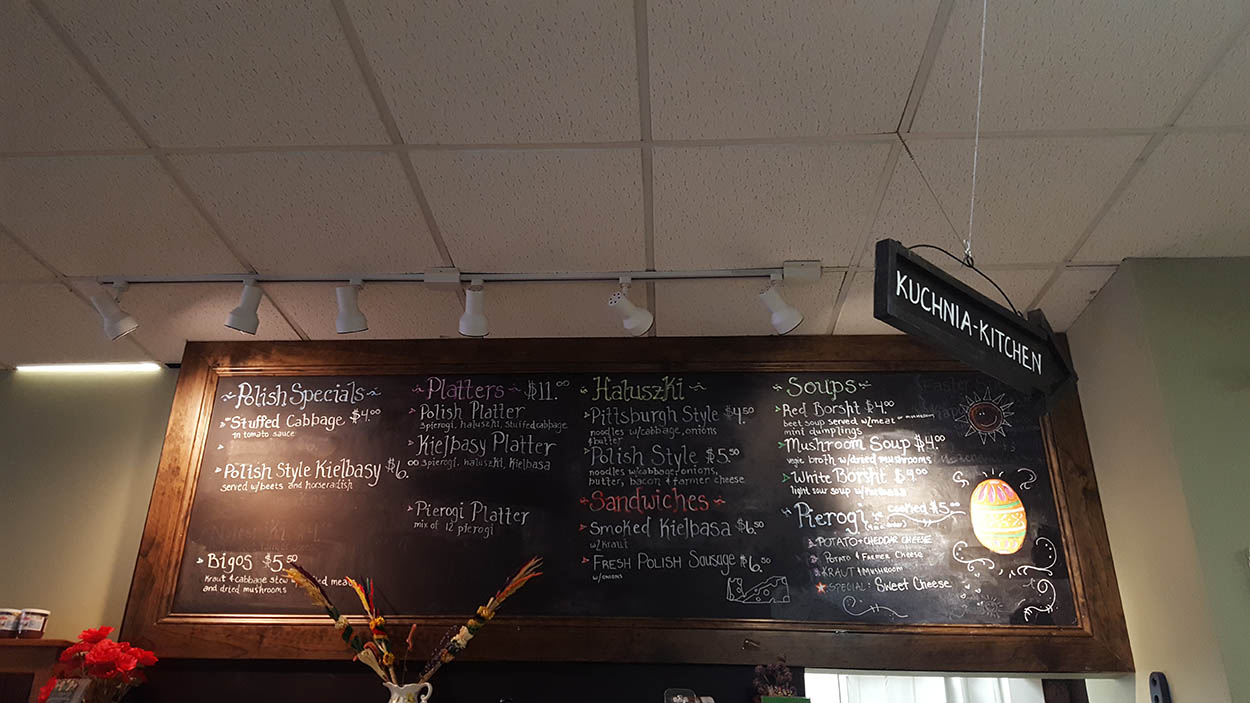 KUCHNIA-KITCHEN
Polish Specials
Stuffed Cabbage $4.00
in tomato sauce
Polish Style Kielbasy $6.00
served w/beets and horseradish
Bigos $5.50
Kraut & cabbage stew
and dried mushrooms
Platters $11.00
Polish Platter
3pierogi, haluszki, stuffed cabbage
Kielbasy Platter
3pierogi, haluszki, Kielbasa
Pierogi Platter
mix of 12 pierogi
Haluszki
Pittsburgh Style $4.50
noodles w/cabbage, onions
&butter
Polish Style $5.50
noodles w/cabbage, onions,
butter, bacon & farmer cheese
Sandwiches
Smoked Kielbasa $6.50
w/Kraut
Fresh Polish Sausage $6.50
w/onions
Soups
Red Borsht $4.00
beet soup served w/meat or mushroom
mini dumplings
Mushroom Soup $4.00
vege broth w/dried mushrooms
White Borsht $4.00
light sour soup w/Kielbasa
Pierogi cooked $5.00
Potato & Cheddar Cheese
Potato & Farmer Cheese
Kraut & Mushroom
Special: Sweet Cheese